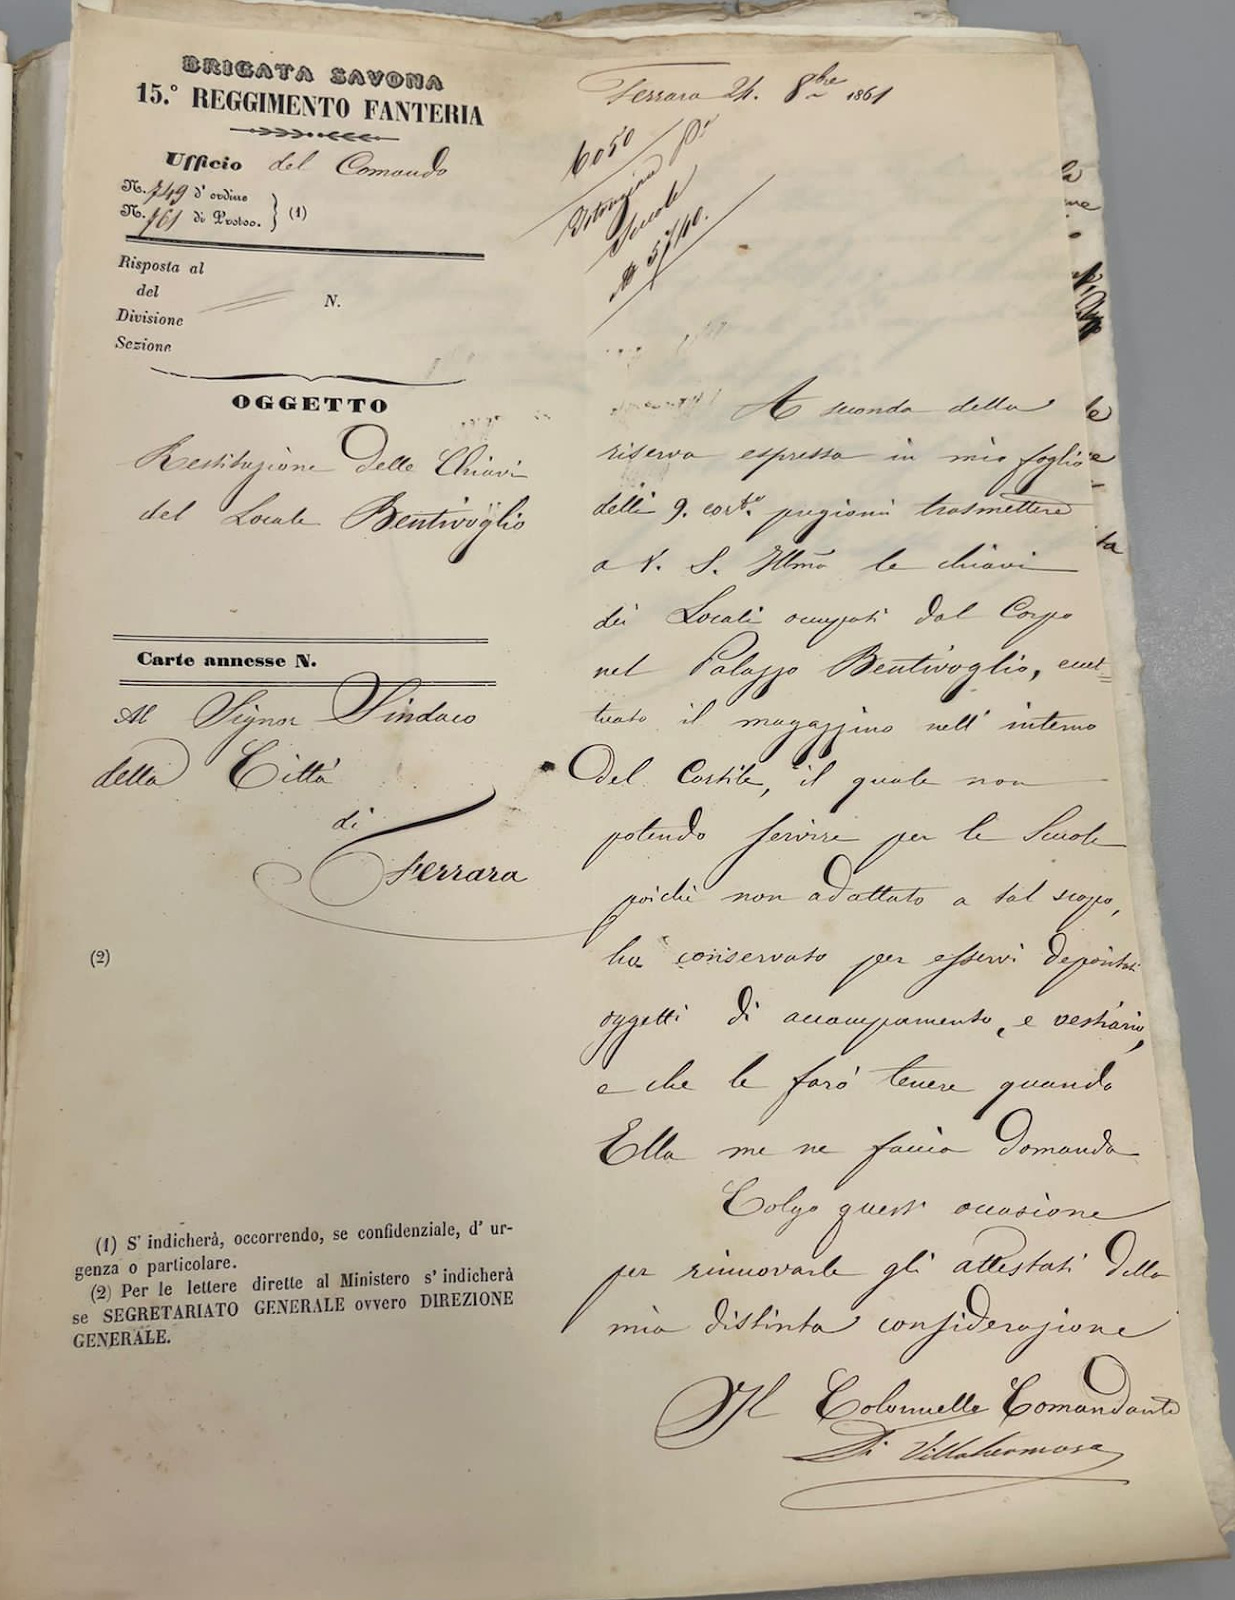 BRIGATA SAVONA
15.° REGGIMENTO FANTERIA
Ufficio del Comando
N. 749 d'ordine
N. 761 di Protoc. (1)
Risposta al
del
Divisione
Sezione
N.
OGGETTO
Restituzione delle Chiavi
del Locale Bentivoglio
Carte annesse N.
Al Signor Sindaco
della Città
di
Ferrara
(2)
(1) S' indicherà, occorrendo, se confidenziale, d' ur-
genza o particolare.
(2) Per le lettere dirette al Ministero s' indicherà
se SEGRETARIATO GENERALE ovvero DIREZIONE
GENERALE.
Ferrara 24. 8bre 1861
6050
Istruzione Pa
Scuole
N 5740.
A seconda della
riserva espressa in mio foglio
delli 9. corte. pregiomi trasmettere
a V. S. Illma le chiavi
dei Locali occupati dal Corpo
nel Palazzo Bentivoglio, ecet=
tuato il magazzino nell' interno
del Cortile, il quale non
potendo servire per le Scuole
poichè non adattato a tal scopo,
ha conservato per esservi depositati
oggetti di accampamento, e vestiario,
e che le farò tenere quando
Ella me ne faccia domanda
Colgo quest' occasione
per rinnovarle gli attestati della
mia distinta considerazione
Il Colonnello Comandante
Di Villahermosa